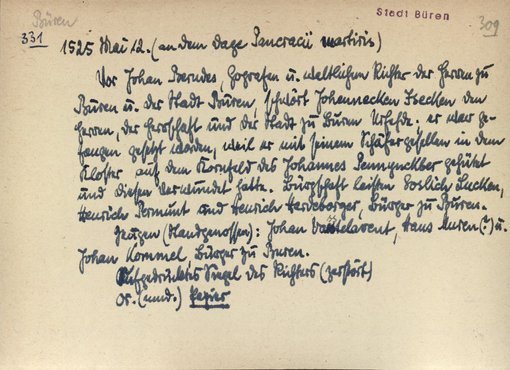 Büren
Stadt Büren
309
331
1525 Mai 12. (an dem dage Pancracii martiris)
Vor Johan Berndes, Gografen u. weltlichen Richter der Herren zu
Büren u. der Stadt Büren, schwört Johannecken Isecken den
Herren, der Herrschaft und der Stadt zu Büren Urfehde. er war ge-
fangen gesetzt worden, weil er mit seinem Schäfergesellen in dem
Kloster auf dem Kornfeld des Johannes gehütet
und diesen verwundet hatte. Bürgschaft leisten Lucken,
Henrich und Henrich Hardeborger, Bürger zu Büren.
Zeugen (Standgenossen): Johan, Hans Auren (?) u.
Johan Kommel, Bürger zu Buren.
Aufgedrücktes Siegel des Richters (zerstört)
Or. (nund.) Papier